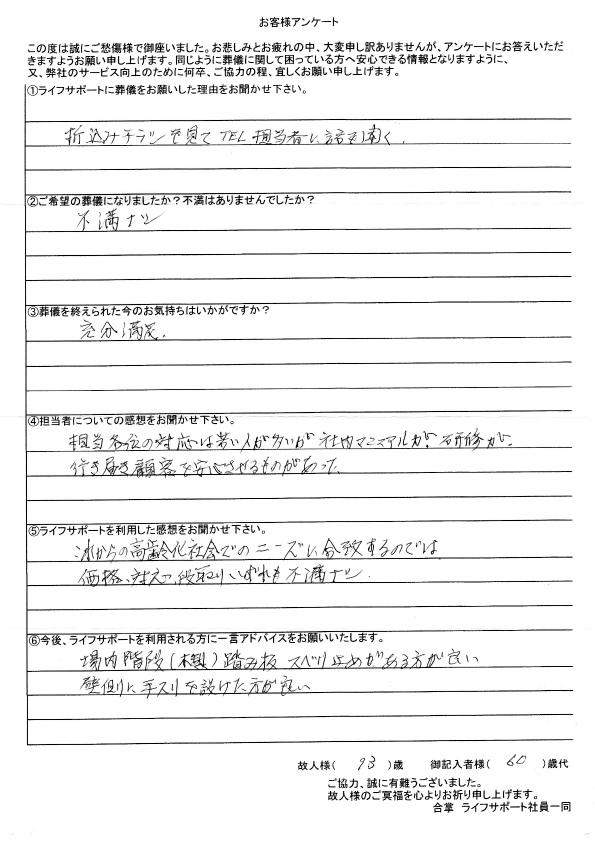 お客様アンケート
この度は誠にご愁傷様で御座いました。お悲しみとお疲れの中、大変申し訳ありませんが、アンケートにお答えいただ
きますようお願い申し上げます。同じように葬儀に関して困っている方へ安心できる情報となりますように、
又、弊社のサービス向上のために何卒、ご協力の程、宜しくお願い申し上げます。
①ライフサポートに葬儀をお願いした理由をお聞かせ下さい。
折込みチラシを見てTEL担当者に話を聞く.
②ご希望の葬儀になりましたか？不満はありませんでしたか？
不満ナシ
③葬儀を終えられた今のお気持ちはいかがですか？
充分満足.
④担当者についての感想をお聞かせ下さい。
担当各位の対応は若い人が多いが社内マニュアルか?研修が
行き届き顧客を安心させるものがあった
⑤ライフサポートを利用した感想をお聞かせ下さい。
これからの高齢化社会でのニーズに合致するのでは
価格、対応、段取りいずれも不満ナシ.
⑥今後、ライフサポートを利用される方に一言アドバイスをお願いいたします。
場内階段(木製)踏み板スベリ止めがある方が良い
壁側に手スリを設けた方が良い
故人様( 93 )歳 御記入者様( 60 )歳代
ご協力、誠に有難うございました。
故人様のご冥福を心よりお祈り申し上げます。
合掌 ライフサポート社員一同